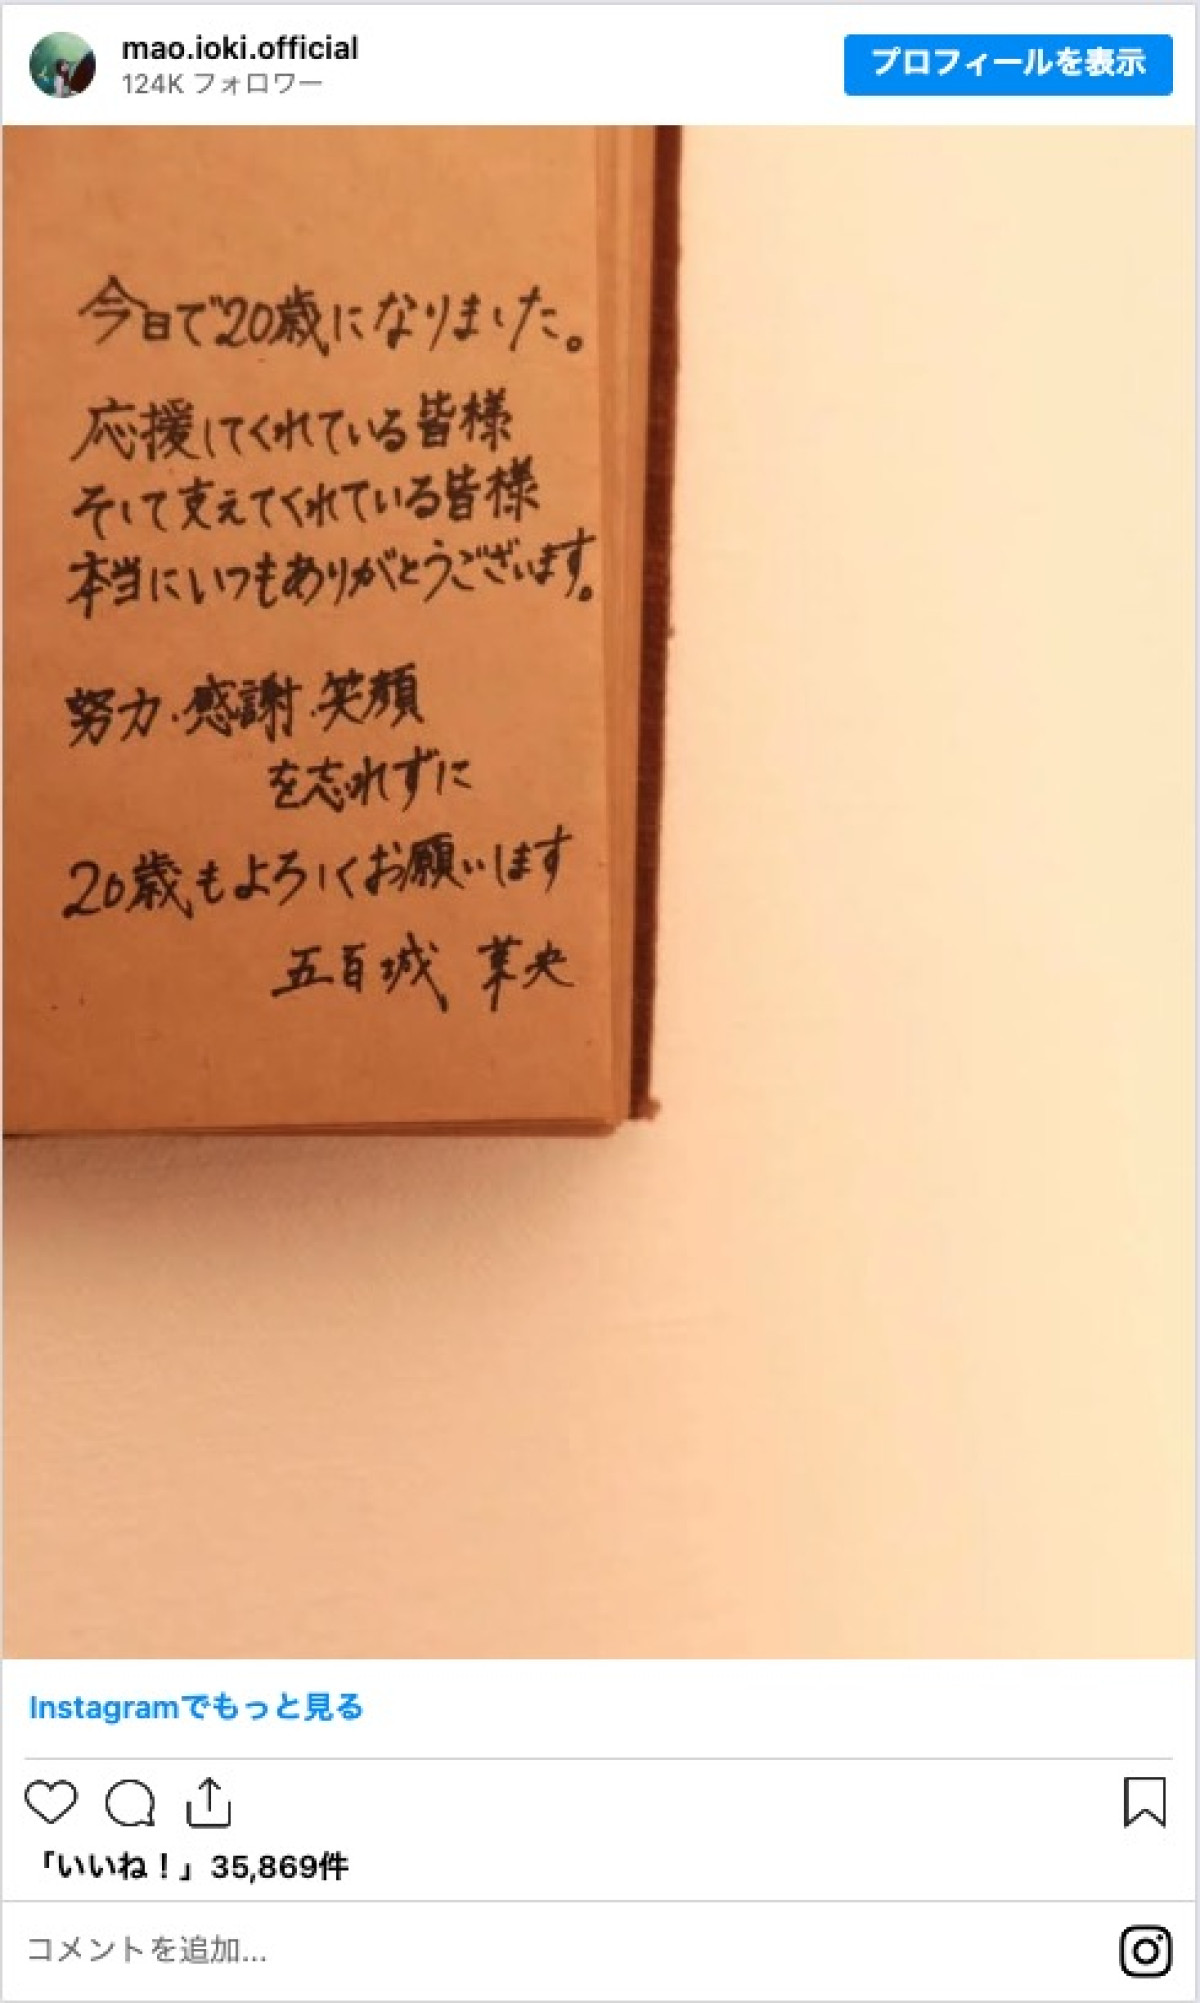 mao.ioki.official
124K フォロワー
プロフィールを表示
今日で20歳になりました。
応援してくれている皆様
そして支えてくれている皆様
本当にいつもありがとうございます。
努力・感謝・笑顔
を忘れずに
20歳もよろしくお願いします
五百城 茉央
Instagramでもっと見る
「いいね！」35,869件
コメントを追加...